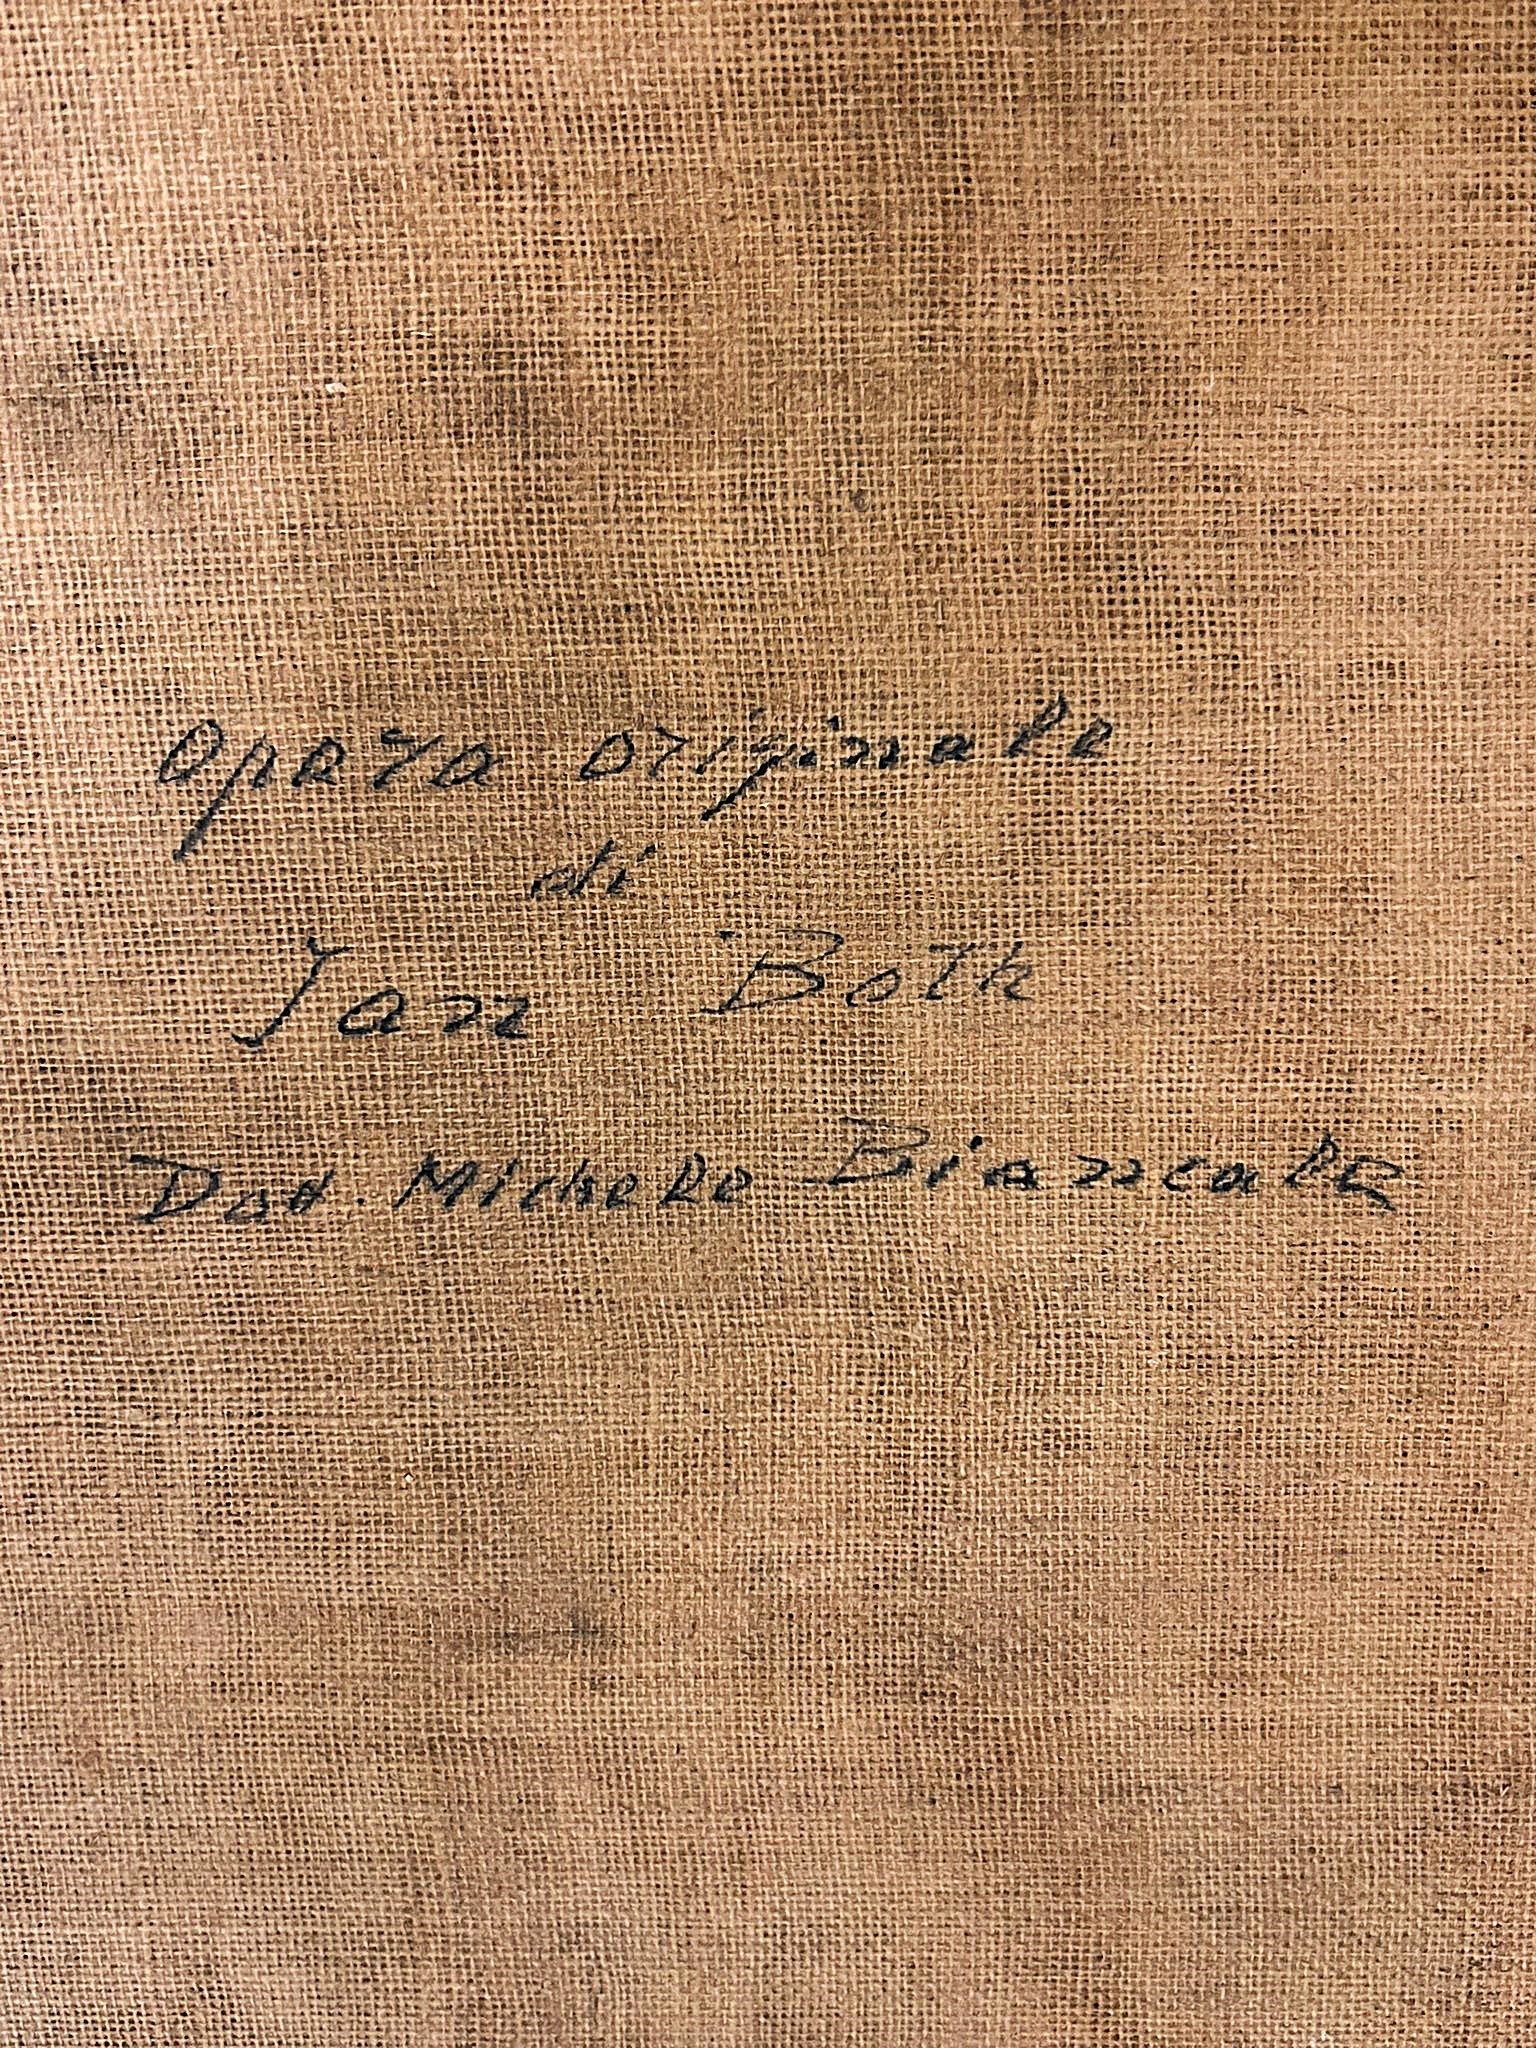 Opera originale
di
Jan Both
Dott. Michele Biancale